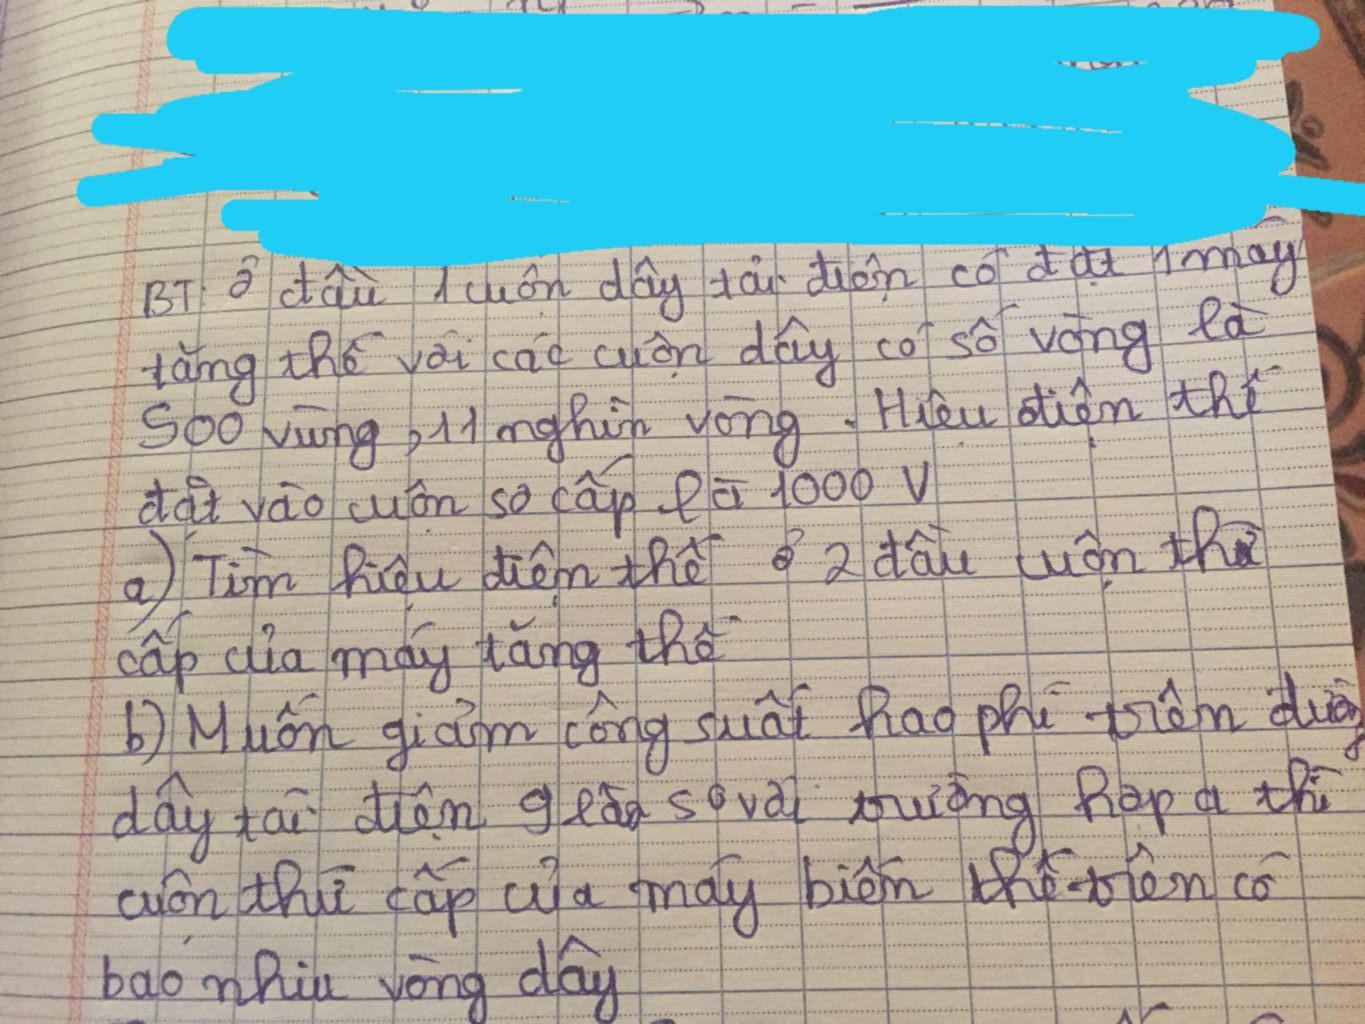 BT: ở đầu 1 cuộn dây tải điện có đặt 1 máy
tăng thế với các cuộn dây có số vòng là
500 vùng, 11 nghìn vòng. Hiệu điện thế
đặt vào cuộn sơ cấp là 1000 V
a) Tìm hiệu điện thế ở 2 đầu cuộn thứ
cấp của máy tăng thế
b) Muốn giảm công suất hao phí trên đường
dây tải điện 9 lần so với trường hợp a thì
cuộn thứ cấp của máy biến thế trên có
bao nhiu vòng dây